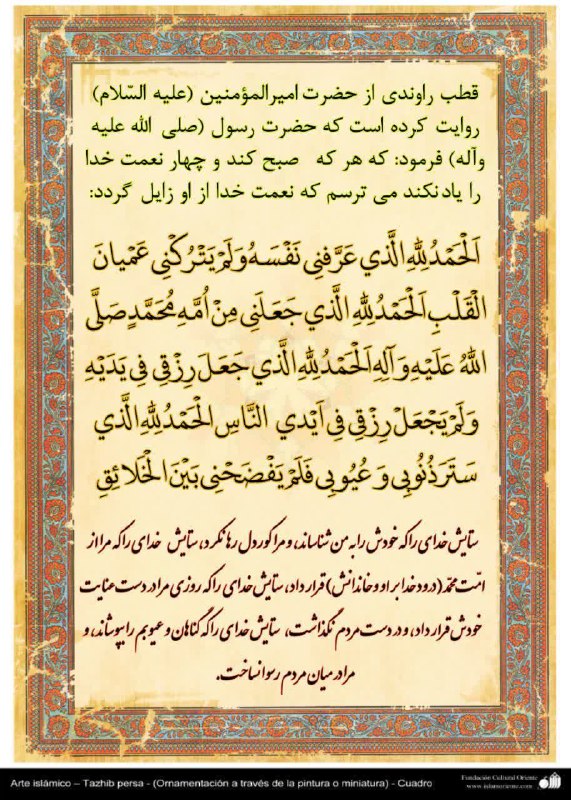 قطب راوندی از حضرت امیرالمؤمنین (علیه السّلام)
روایت کرده است که حضرت رسول (صلی الله علیه
وآله) فرمود: که هر که صبح کند و چهار نعمت خدا
را یاد نکند می ترسم که نعمت خدا از او زایل گردد:
اَلْحَمْدُ لِلّٰهِ الَّذي عَرَّفَنِي نَفْسَهُ وَلَمْ يَتْرُكْنِي عَمْيانَ
الْقَلْبِ اَلْحَمْدُ لِلّٰهِ الَّذي جَعَلَنِي مِنْ اُمَّهِ مُحَمَّدٍ صَلَّى
اللهُ عَلَيْهِ وَآلِهِ اَلْحَمْدُ لِلّٰهِ الَّذي جَعَلَ رِزْقِي فِي يَدَيْهِ
وَلَمْ يَجْعَلْ رِزْقِي فِي اَيْدِي النَّاسِ اَلْحَمْدُ لِلّٰهِ الَّذي
سَتَرَ ذُنُوبِي وَ عُيُوبِي فَلَمْ يَفْضَحْنِي بَيْنَ الْخَلائِقِ
ستایش خدای راکه خودش را به من شناساند، و مرا کوردل رها نکرد، ستایش خدای راکه مرا از
امّت محمّد (درود خدا بر او و خاندانش) قرار داد، ستایش خدای راکه روزی مرا در دست عنایت
خودش قرار داد، و در دست مردم نگذاشت، ستایش خدای راکه گناهان و عیوبم را بپوشاند، و
مرا در میان مردم رسوا نساخت.
Arte islámico – Tazhib persa - (Ornamentación a través de la pintura o miniatura) - Cuadro
Fundación Cultural Oriente
www.islamoriente.com